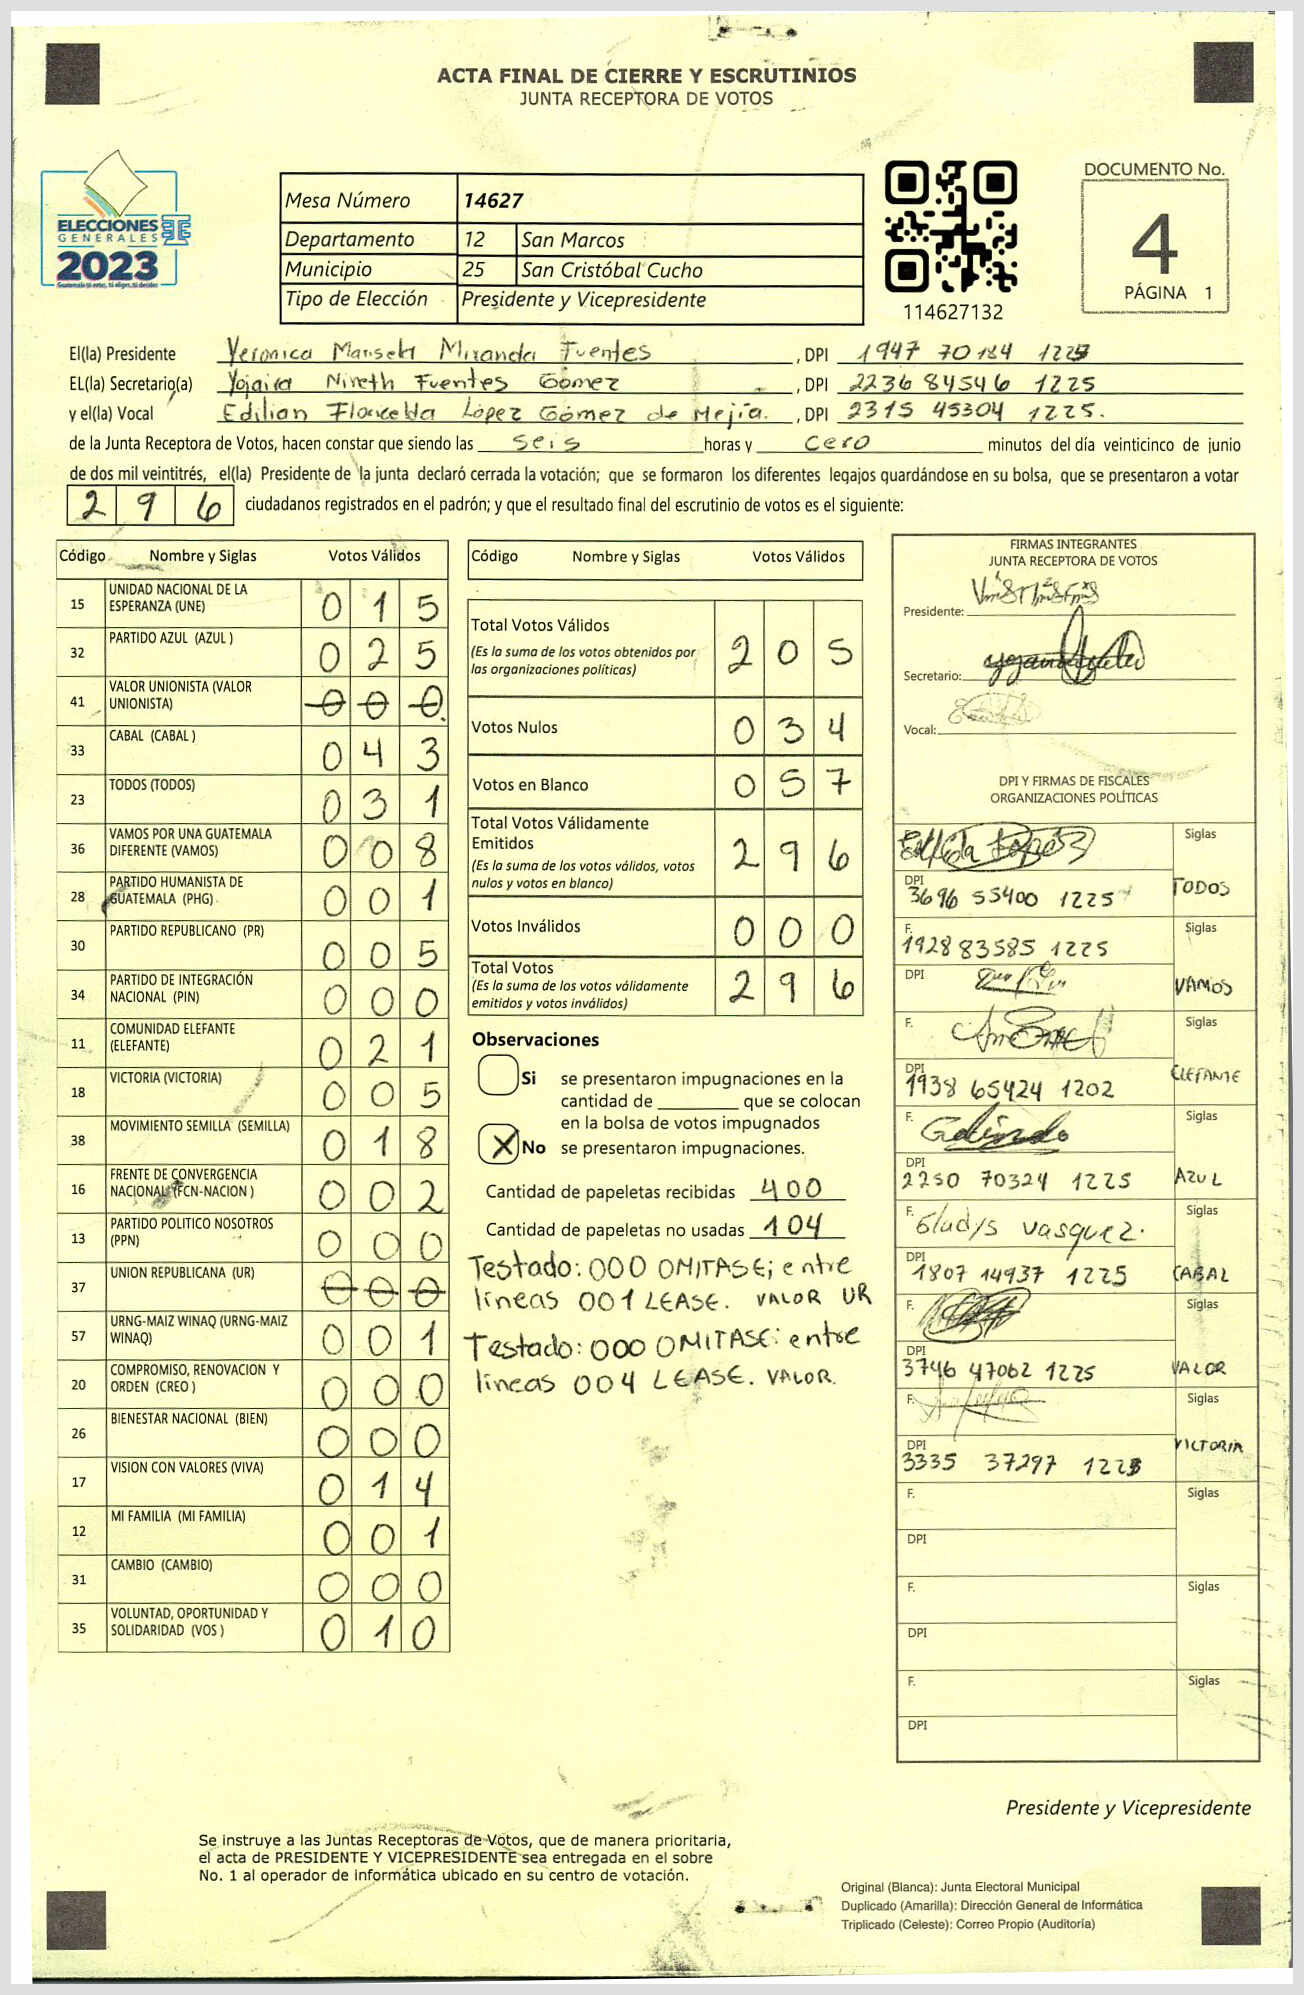 ACTA FINAL DE CIERRE Y ESCRUTINIOS
JUNTA RECEPTORA DE VOTOS
ELECCIONES
GENERALES
2023
Mesa Número 14627
Departamento 12 San Marcos
Municipio 25 San Cristóbal Cucho
Tipo de Elección Presidente y Vicepresidente
114627132
DOCUMENTO No.
4
PÁGINA 1
El(la) Presidente Veronica Marisela Miranda Fuentes , DPI 1947 70184 1225
EL(la) Secretario(a) Yojaira Nineth Fuentes Gómez , DPI 2236 84546 1225
y el(la) Vocal Edilian Floricelda López Gómez de Mejía. , DPI 2315 45304 1225.
de la Junta Receptora de Votos, hacen constar que siendo las seis horas y cero minutos del día veinticinco de junio
de dos mil veintitrés, el(la) Presidente de la junta declaró cerrada la votación; que se formaron los diferentes legajos guardándose en su bolsa, que se presentaron a votar
296 ciudadanos registrados en el padrón; y que el resultado final del escrutinio de votos es el siguiente:
Código Nombre y Siglas Votos Válidos
15 UNIDAD NACIONAL DE LA
ESPERANZA (UNE) 015
32 PARTIDO AZUL (AZUL ) 025
41 VALOR UNIONISTA (VALOR
UNIONISTA) 000
33 CABAL (CABAL ) 043
23 TODOS (TODOS) 031
36 VAMOS POR UNA GUATEMALA
DIFERENTE (VAMOS) 008
28 PARTIDO HUMANISTA DE
GUATEMALA (PHG) 001
30 PARTIDO REPUBLICANO (PR) 005
34 PARTIDO DE INTEGRACIÓN
NACIONAL (PIN) 000
11 COMUNIDAD ELEFANTE
(ELEFANTE) 021
18 VICTORIA (VICTORIA) 005
38 MOVIMIENTO SEMILLA (SEMILLA) 018
16 FRENTE DE CONVERGENCIA
NACIONAL (FCN-NACION ) 002
13 PARTIDO POLITICO NOSOTROS
(PPN) 000
37 UNION REPUBLICANA (UR) 000
57 URNG-MAIZ WINAQ (URNG-MAIZ
WINAQ) 001
20 COMPROMISO, RENOVACION Y
ORDEN (CREO ) 000
26 BIENESTAR NACIONAL (BIEN) 000
17 VISION CON VALORES (VIVA) 014
12 MI FAMILIA (MI FAMILIA) 001
31 CAMBIO (CAMBIO) 000
35 VOLUNTAD, OPORTUNIDAD Y
SOLIDARIDAD (VOS ) 010
Código Nombre y Siglas Votos Válidos
Total Votos Válidos
(Es la suma de los votos obtenidos por
las organizaciones políticas) 205
Votos Nulos 034
Votos en Blanco 057
Total Votos Válidamente
Emitidos
(Es la suma de los votos válidos, votos
nulos y votos en blanco) 296
Votos Inválidos 000
Total Votos
(Es la suma de los votos válidamente
emitidos y votos inválidos) 296
Observaciones
Si se presentaron impugnaciones en la
cantidad de ________ que se colocan
en la bolsa de votos impugnados
X No se presentaron impugnaciones.
Cantidad de papeletas recibidas 400
Cantidad de papeletas no usadas 104
Testado: 000 OMITASE; entre
líneas 001 LEASE. VALOR UR
Testado: 000 OMITASE: entre
líneas 004 LEASE. VALOR.
FIRMAS INTEGRANTES
JUNTA RECEPTORA DE VOTOS
Presidente:
Secretario:
Vocal:
DPI Y FIRMAS DE FISCALES
ORGANIZACIONES POLÍTICAS
Siglas
DPI
3696 55400 1225 TODOS
F. Siglas
1928 83585 1225
DPI VAMOS
F. Siglas
DPI
1938 65424 1202 ELEFANTE
F. Galindo Siglas
DPI
2250 70324 1225 AZUL
F. Gladys Vasquez. Siglas
DPI
1807 14937 1225 CABAL
F. Siglas
DPI
3746 47062 1225 VALOR
F. Siglas
DPI
3335 37297 1223 VICTORIA
F. Siglas
DPI
F. Siglas
DPI
F. Siglas
DPI
Presidente y Vicepresidente
Se instruye a las Juntas Receptoras de Votos, que de manera prioritaria,
el acta de PRESIDENTE Y VICEPRESIDENTE sea entregada en el sobre
No. 1 al operador de informática ubicado en su centro de votación.
Original (Blanca): Junta Electoral Municipal
Duplicado (Amarilla): Dirección General de Informática
Triplicado (Celeste): Correo Propio (Auditoría)